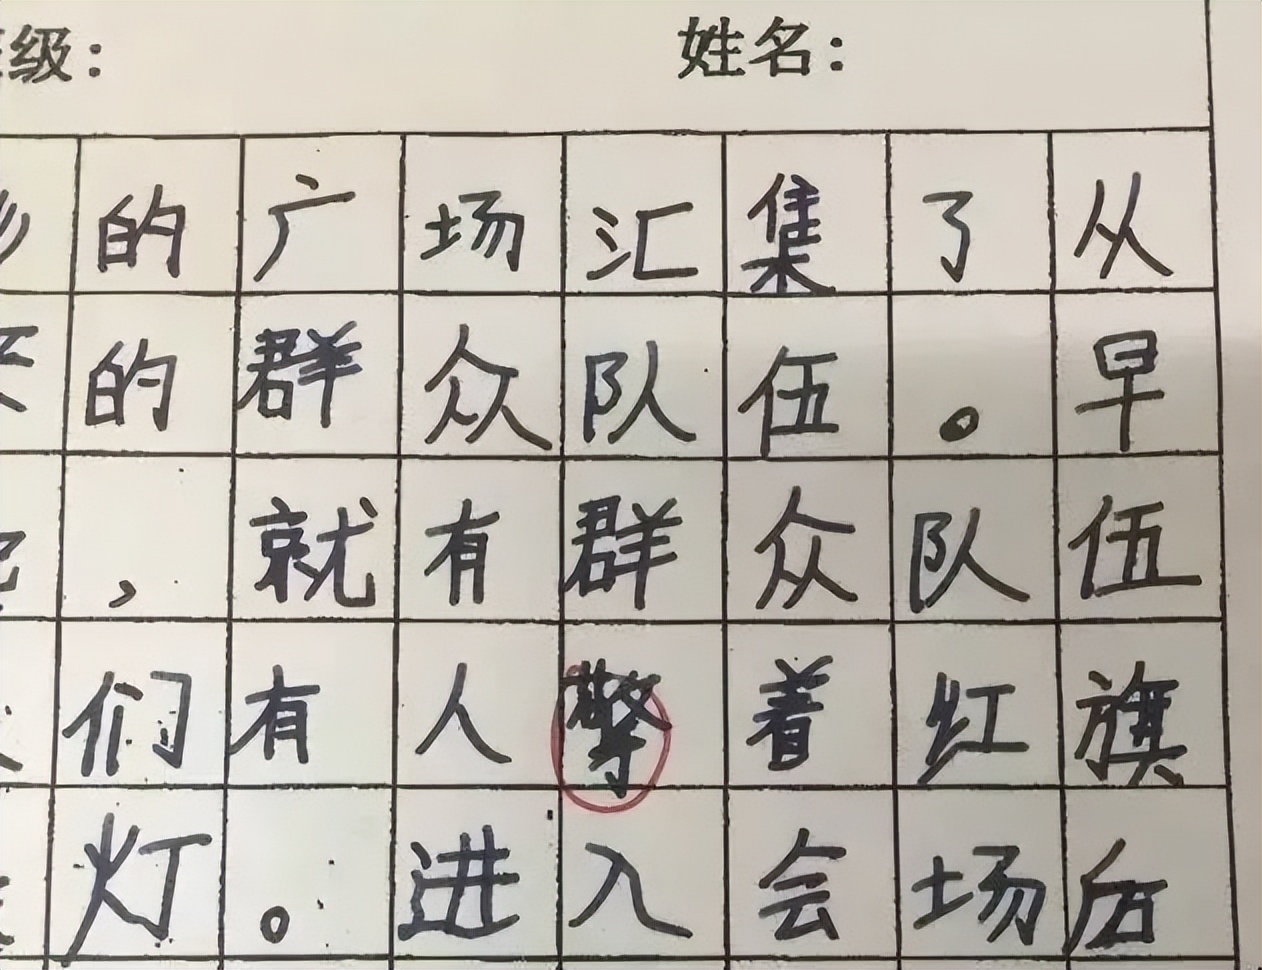 级： 姓名：
的广场汇集了从
的群众队伍。早
，就有群众队伍
们有人擎着红旗
灯。进入会场后